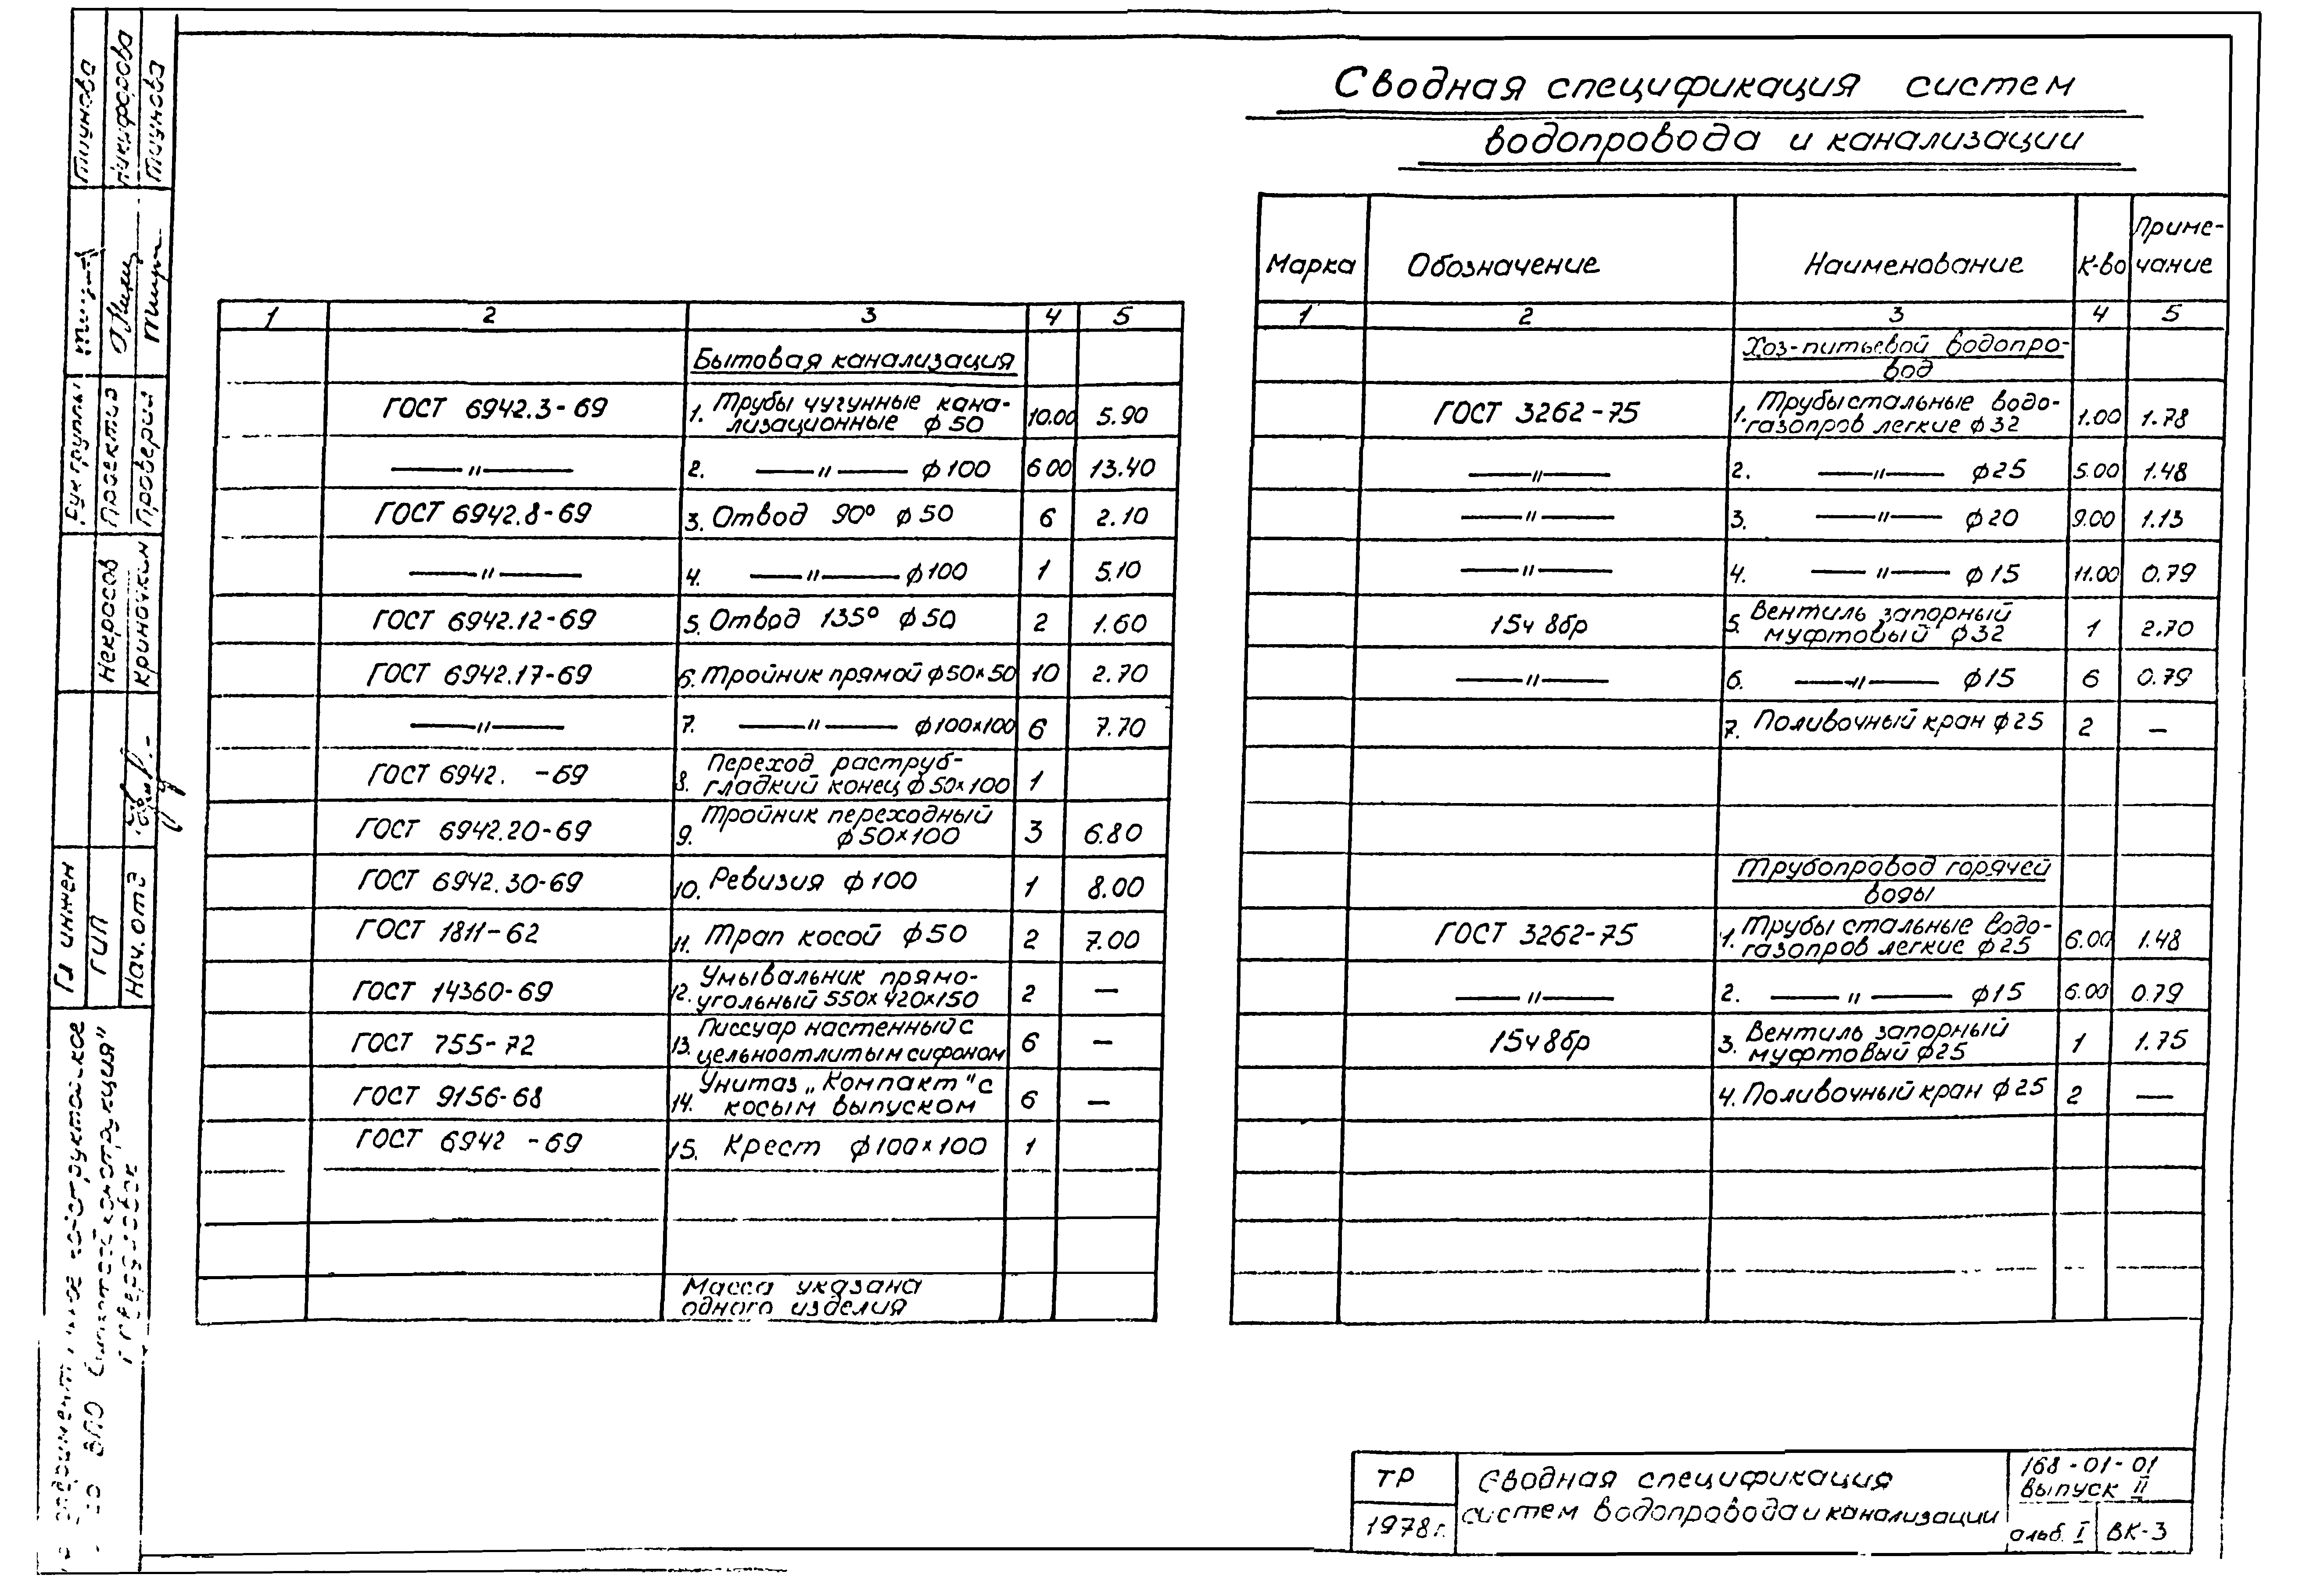 Сводная спецификация систем
водопровода и канализации
Марка Обозначение Наименование К-во Приме-
чание
1 2 3 4 5
Хоз-питьевой водопро-
вод
ГОСТ 3262-75 1. Трубы стальные водо-
газопров легкие ф32 1.00 1.78
—〃— 2. —〃— ф25 5.00 1.48
—〃— 3. —〃— ф20 9.00 1.13
—〃— 4. —〃— ф15 11.00 0.79
15ч 8бр 5. Вентиль запорный
муфтовый ф32 1 2.70
—〃— 6. —〃— ф15 6 0.79
7. Поливочный кран ф25 2 —
Трубопровод горячей
воды
ГОСТ 3262-75 1. Трубы стальные водо-
газопров легкие ф25 6.00 1.48
—〃— 2. —〃— ф15 6.00 0.79
15ч 8бр 3. Вентиль запорный
муфтовый ф25 1 1.75
4. Поливочный кран ф25 2 —
1 2 3 4 5
Бытовая канализация
ГОСТ 6942.3-69 1. Трубы чугунные кана-
лизационные ф50 10.00 5.90
—〃— 2. —〃— ф100 6.00 13.40
ГОСТ 6942.8-69 3. Отвод 90° ф50 6 2.10
—〃— 4. —〃— ф100 1 5.10
ГОСТ 6942.12-69 5. Отвод 135° ф50 2 1.60
ГОСТ 6942.17-69 6. Тройник прямой ф50×50 10 2.70
—〃— 7. —〃— ф100×100 6 7.70
ГОСТ 6942. -69 8. Переход раструб-
гладкий конец ф50×100 1
ГОСТ 6942.20-69 9. Тройник переходный
ф50×100 3 6.80
ГОСТ 6942.30-69 10. Ревизия ф100 1 8.00
ГОСТ 1811-62 11. Трап косой ф50 2 7.00
ГОСТ 14360-69 12. Умывальник прямо-
угольный 550×420×150 2 —
ГОСТ 755-72 13. Писсуар настенный с
цельноотлитым сифоном 6 —
ГОСТ 9156-68 14. Унитаз „Компакт" с
косым выпуском 6 —
ГОСТ 6942 -69 15. Крест ф100×100 1
Масса указана
одного изделия
ТР
1978г.
Сводная спецификация
систем водопровода и канализации
168-01-01
выпуск II
альб. I ВК-3
Гл инжен
ГИП Некрасов
Нач. отд Криночкин
Рук группы Тиунова
Проектир Никифорова
Проверил Тиунова